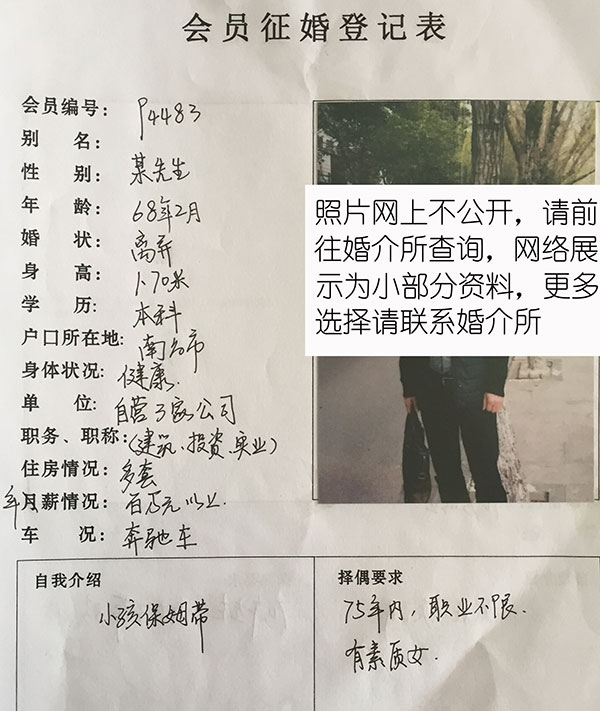 会员征婚登记表
会员编号: P4483
别 名:
性 别: 某先生
年 龄: 68年2月
婚 状: 离异
身 高: 1.70米
学 历: 本科
户口所在地: 南京市
身体状况: 健康.
单 位: 自营3家公司
职务、职称: (建筑、投资、实业)
住房情况: 多套
年月薪情况: 百万元以上.
车 况: 奔驰车
照片网上不公开，请前
往婚介所查询，网络展
示为小部分资料，更多
选择请联系婚介所
自我介绍
小孩保姆带
择偶要求
75年内，职业不限.
有素质女.